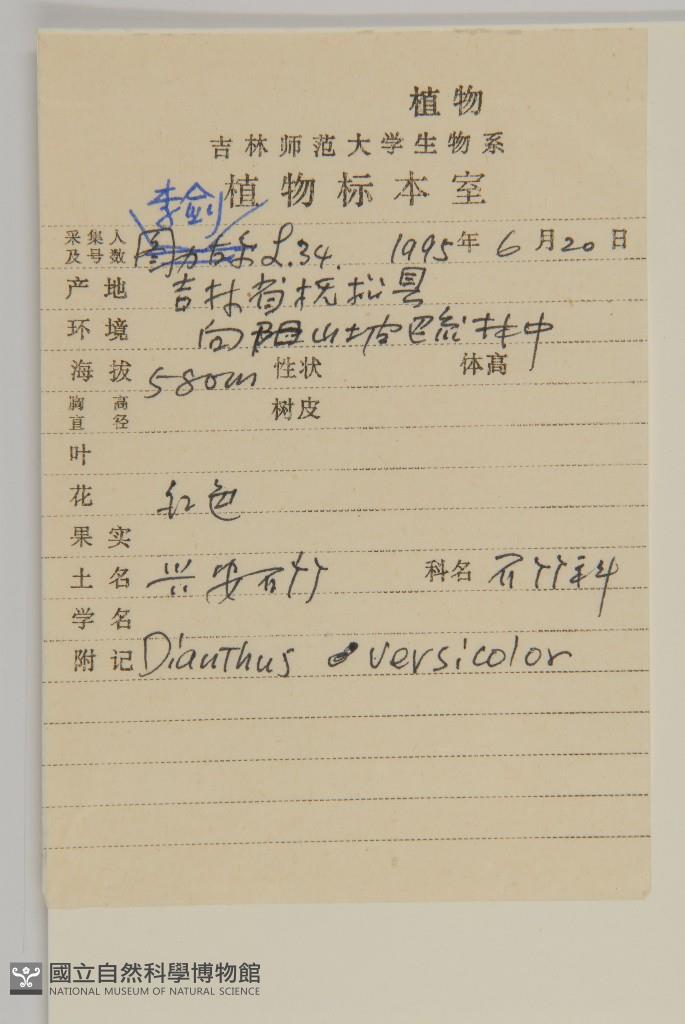 植物
吉林师范大学生物系
植物标本室
李剑
采集人及号数 图力古尔 L.34. 1995年6月20日
产地 吉林省抚松县
环境 向阳山坡 林中
海拔 580m 性状 体高
胸高直径 树皮
叶
花 红色
果实
土名 兴安石竹 科名 石竹科
学名
附记 Dianthus versicolor
國立自然科學博物館
NATIONAL MUSEUM OF NATURAL SCIENCE